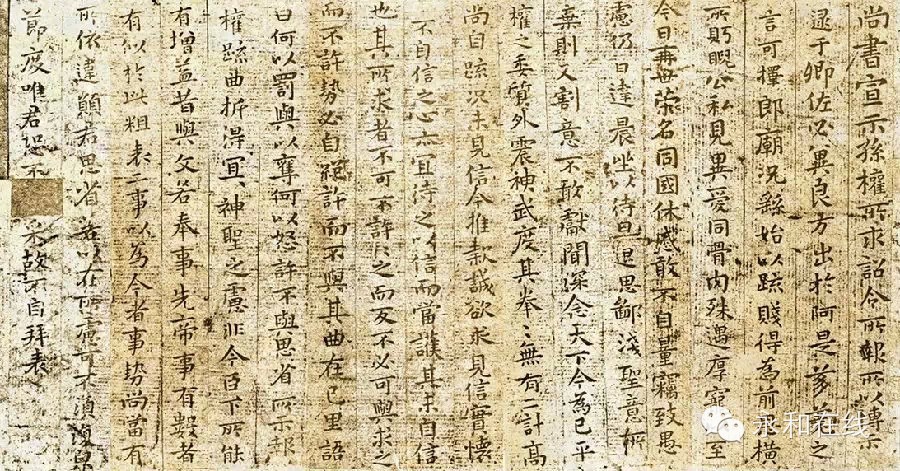 尚書宣示孫權所求詔令所報所以博示
逮于卿佐必冀良方出於阿是芻蕘之
言可擇郎廟況繇始以疏賤得為前恩橫
所眄睨公私見異愛同骨肉殊遇厚寵以至
今日再世榮名同國休慼敢不自量竊致愚
慮仍日達晨坐以待旦退思鄙淺聖意所
棄則又割意不敢獻聞深念天下今為已平
權之委質外震神武度其拳〻無有二計高
尚自疏況未見信今推款誠欲求見信實懷
不自信之心亦宜待之以信而當護其未自信
也其所求者不可不許〻之而反不必可與求之
而不許勢必自絕許而不與其曲在己里語
曰何以罰與以奪何以怒許不與思省所示報
權疏曲折得宜〻神聖之慮非今臣下所能
有增益昔與文若奉事先帝事有數者
有似於此粗表二事以為今者事勢尚當有
所依違願君思省若以在所慮可不須復
節度唯君恐不采故不自拜表
永和在线